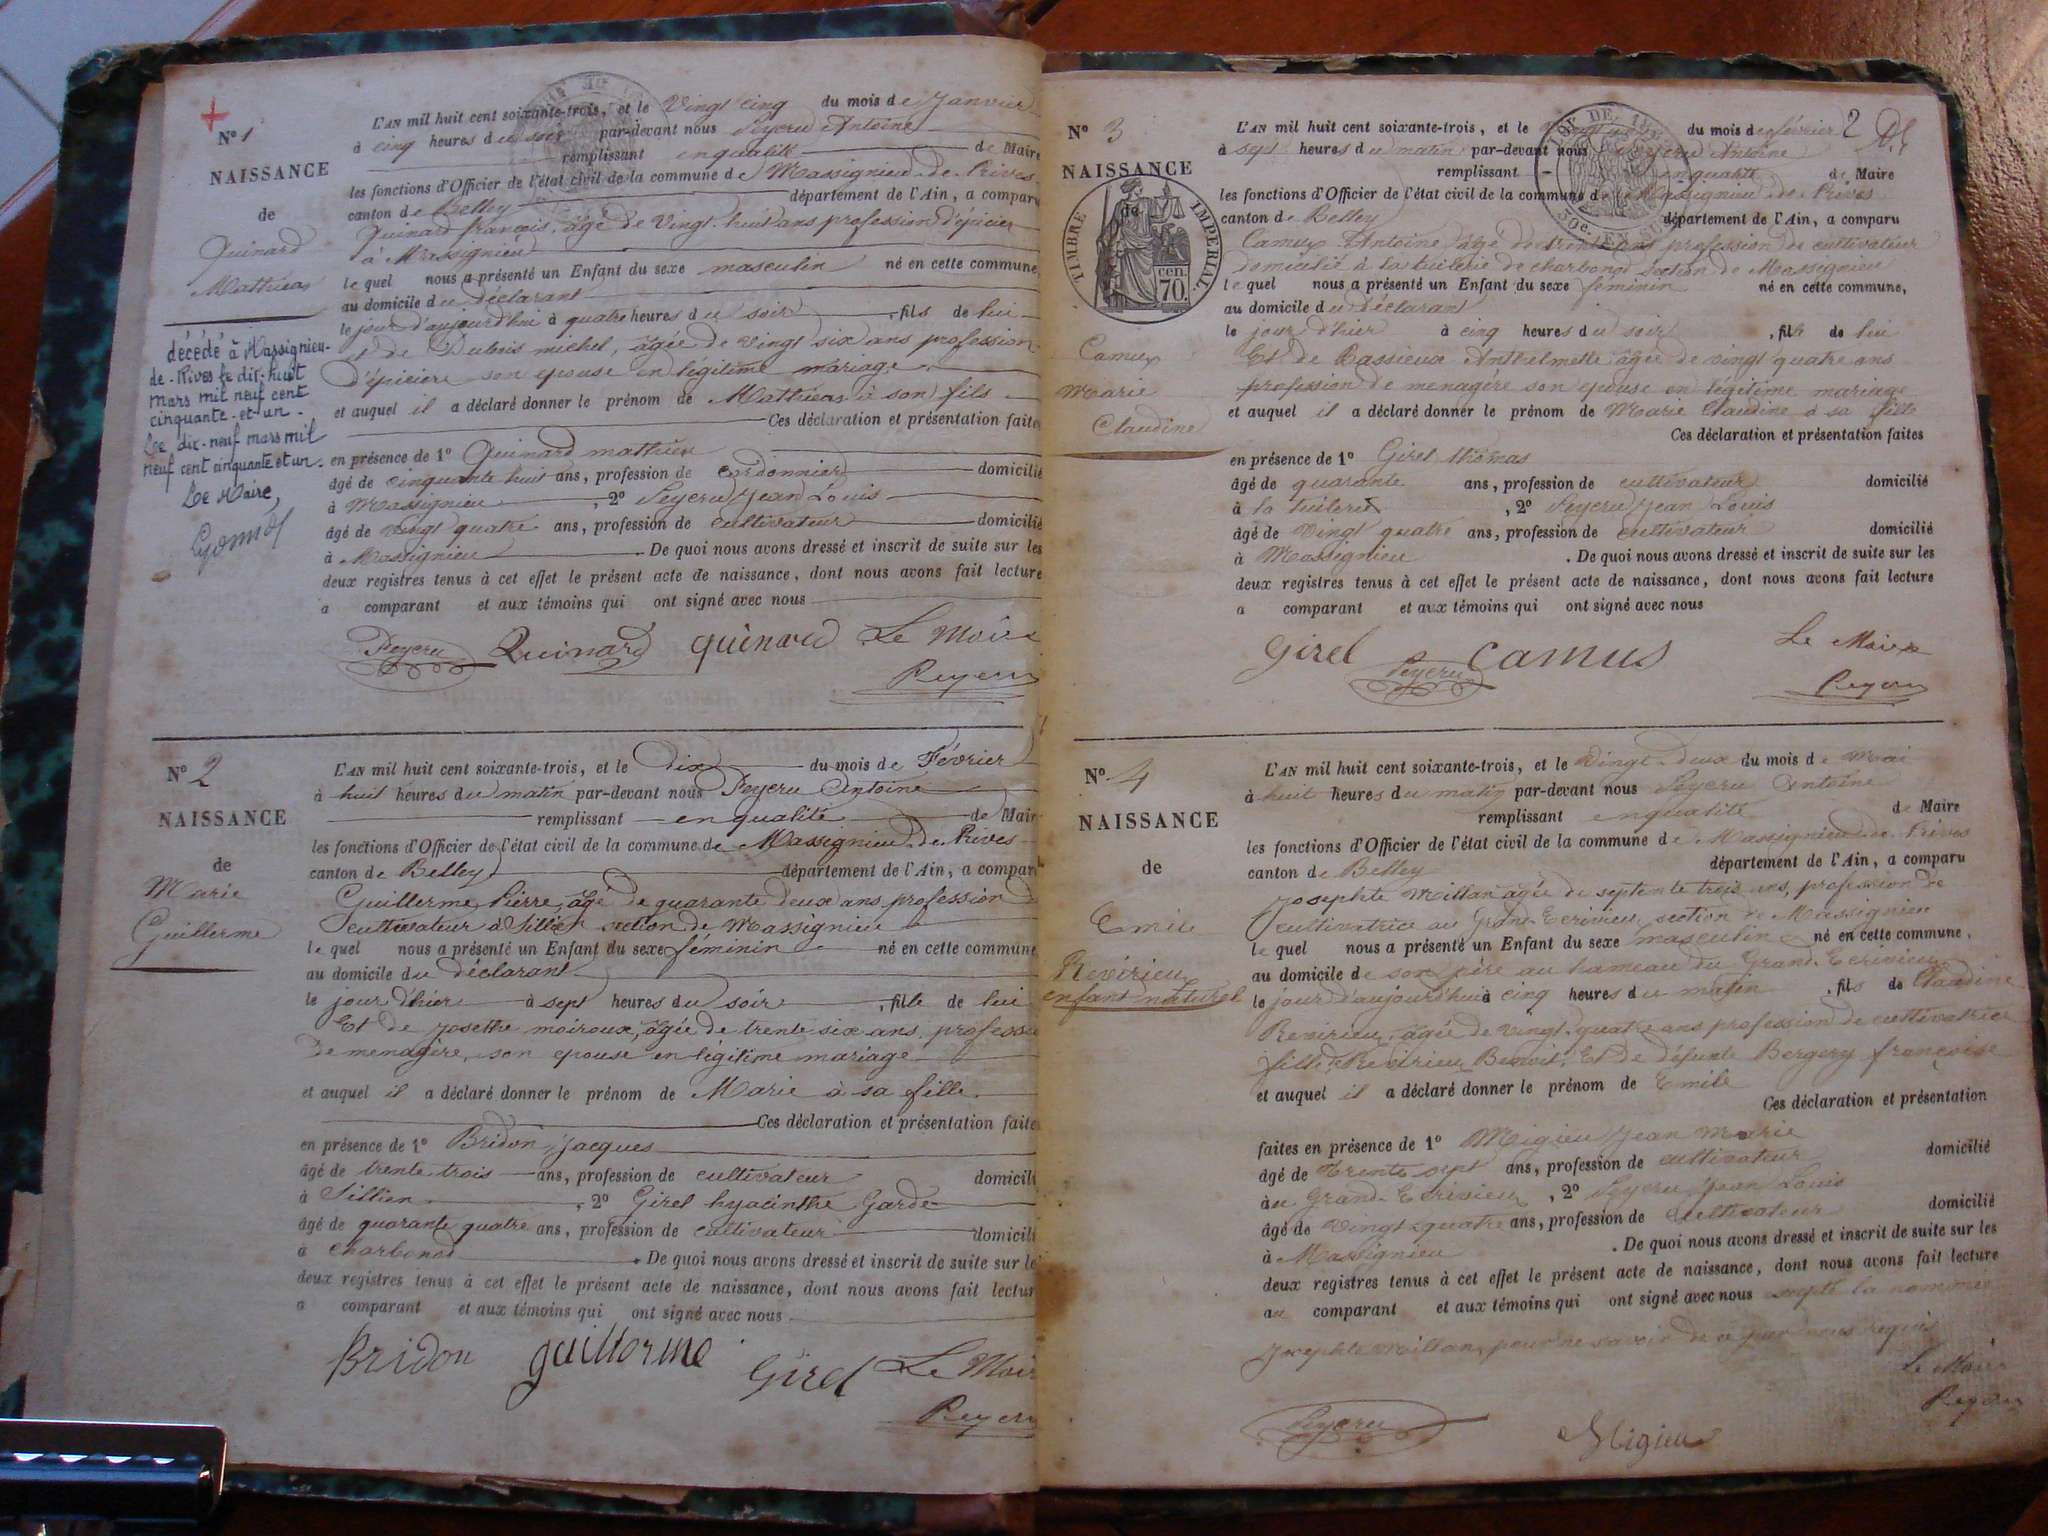 Nº 1
NAISSANCE
de
Quinard
Mathieu
décédé à Massignieu-
de-Rives le dix-huit
mars mil neuf cent
cinquante-et-un.
Le dix-neuf mars mil
neuf cent cinquante et un.
Le Maire,
L'AN mil huit cent soixante-trois, et le Vingt cinq du mois de Janvier
à cinq heures du soir par-devant nous Peyeru Antoine
remplissant en qualité de Maire
les fonctions d'Officier de l'état civil de la commune de Massignieu de Rives
canton de Belley département de l'Ain, a comparu
Quinard françois, âgé de Vingt huit ans profession d'épicier
à Massignieu
le quel nous a présenté un Enfant du sexe masculin né en cette commune,
au domicile du déclarant
le jour d'aujourd'hui à quatre heures du soir , fils de lui
et de Dubois michel, âgée de vingt six ans profession
d'épiciere son epouse en légitime mariage
et auquel il a déclaré donner le prénom de Mathieu à son fils
Ces déclaration et présentation faites
en présence de 1º Quinard mathieu
âgé de cinquante huit ans, profession de cordonnier domicilié
à Massignieu , 2º Peyeru Jean Louis
âgé de vingt quatre ans, profession de cultivateur domicilié
à Massignieu . De quoi nous avons dressé et inscrit de suite sur les
deux registres tenus à cet effet le présent acte de naissance, dont nous avons fait lecture
a comparant et aux témoins qui ont signé avec nous
Peyeru Quinard quinard Le Maire
Peyeru
Nº 2
NAISSANCE
de
Marie
Guillerme
L'AN mil huit cent soixante-trois, et le Dix du mois de Février
à huit heures du matin par-devant nous Peyeru Antoine
remplissant en qualité de Mair
les fonctions d'Officier de l'état civil de la commune de Massignieu de Rives
canton de Belley département de l'Ain, a compar
Guillerme Pierre, âgé de quarante deux ans profession d
cultivateur à Sillien section de Massignieu
le quel nous a présenté un Enfant du sexe féminin né en cette commune
au domicile du déclarant
le jour d'hier à sept heures du soir , fille de lui
Et de Josette moiroux, âgée de trente six ans professi
de menagère, son epouse en légitime mariage
et auquel il a déclaré donner le prénom de Marie à sa fille.
Ces déclaration et présentation faite
en présence de 1º Bridon Jacques
âgé de trente trois ans, profession de cultivateur domicili
à Sillien , 2º Girel hyacinthe Garde
âgé de quarante quatre ans, profession de cultivateur domicili
à charbonod . De quoi nous avons dressé et inscrit de suite sur le
deux registres tenus à cet effet le présent acte de naissance, dont nous avons fait lectur
a comparant et aux témoins qui ont signé avec nous
Bridon guillerme Girel Le Mair
Peyeru
Nº 3
NAISSANCE
de
TIMBRE IMPERIAL
cen.
70.
Camux
Marie
Claudine
2
L'AN mil huit cent soixante-trois, et le du mois de février
à sept heures du matin par-devant nous Peyeru Antoine
remplissant en qualité de Maire
les fonctions d'Officier de l'état civil de la commune de Massignieu de Rives
canton de Belley département de l'Ain, a comparu
Camux Antoine âgé de trente ans profession de cultivateur
domicilié à la tuilerie de charbonod section de Massignieu
le quel nous a présenté un Enfant du sexe féminin né en cette commune,
au domicile du déclarant
le jour d'hier à cinq heures du soir , fille de lui
Et de Rassieux Anthelmette âgée de vingt quatre ans
profession de menagère son epouse en légitime mariage
et auquel il a déclaré donner le prénom de Marie Claudine à sa fille
Ces déclaration et présentation faites
en présence de 1º Girel thomas
âgé de quarante ans, profession de cultivateur domicilié
à la tuilerie , 2º Peyeru Jean Louis
âgé de Vingt quatre ans, profession de cultivateur domicilié
à Massignieu . De quoi nous avons dressé et inscrit de suite sur les
deux registres tenus à cet effet le présent acte de naissance, dont nous avons fait lecture
a comparant et aux témoins qui ont signé avec nous
Girel Peyeru camus Le Maire
Peyeru
Nº 4
NAISSANCE
de
Emile
Revirieu
enfant naturel
L'AN mil huit cent soixante-trois, et le Vingt deux du mois de Mai
à huit heures du matin par-devant nous Peyeru Antoine
remplissant en qualité de Maire
les fonctions d'Officier de l'état civil de la commune de Massignieu de Rives
canton de Belley département de l'Ain, a comparu
Josephte Millan âgée de septente trois ans, profession de
cultivatrice au Grand Ecrivieu, section de Massignieu
le quel nous a présenté un Enfant du sexe masculin né en cette commune,
au domicile de son père au hameau du Grand-Ecrivieu
le jour d'aujourd'hui à cinq heures du matin , fils de Claudine
Revirieu, âgée de vingt-quatre ans profession de cultivatrice
fille Revirieu Benoit, Et de défunte Bergery françoise
et auquel il a déclaré donner le prénom de Emile
Ces déclaration et présentation
faites en présence de 1º Migieu Jean Marie
âgé de trente sept ans, profession de cultivateur domicilié
au Grand-Ecrivieu , 2º Peyeru Jean Louis
âgé de vingt-quatre ans, profession de cultivateur domicilié
à Massignieu . De quoi nous avons dressé et inscrit de suite sur les
deux registres tenus à cet effet le présent acte de naissance, dont nous avons fait lecture
au comparant et aux témoins qui ont signé avec nous la nommée
Josephte Millan, pour ne savoir de ce par nous requis
Le Maire
Peyeru
Peyeru Migieu